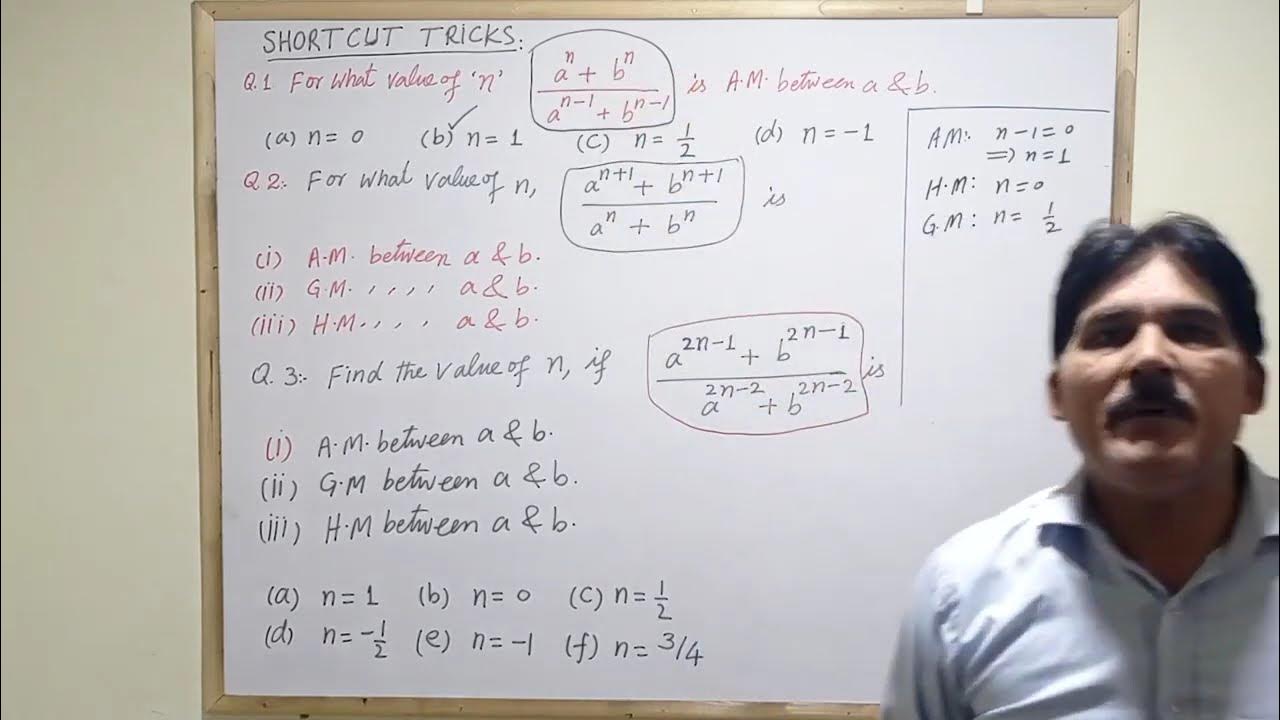 SHORTCUT TRICKS:
Q.1 For what value of 'n' (a^n + b^n)/(a^(n-1) + b^(n-1)) is A.M. between a & b.
(a) n = 0 (b) ✓ n = 1 (C) n = 1/2 (d) n = -1
Q 2:- For what value of n, (a^(n+1) + b^(n+1))/(a^n + b^n) is
(i) A.M. between a & b.
(ii) G.M. , , , , a & b.
(iii) H.M. , , , a & b.
Q. 3:- Find the value of n, if (a^(2n-1) + b^(2n-1))/(a^(2n-2) + b^(2n-2)) is
(i) A.M. between a & b.
(ii) G.M between a & b.
(iii) H.M between a & b.
(a) n = 1 (b) n = 0 (C) n = 1/2
(d) n = -1/2 (e) n = -1 (f) n = 3/4
A.M:. n-1=0
⇒ n=1
H.M: n=0
G.M: n= 1/2